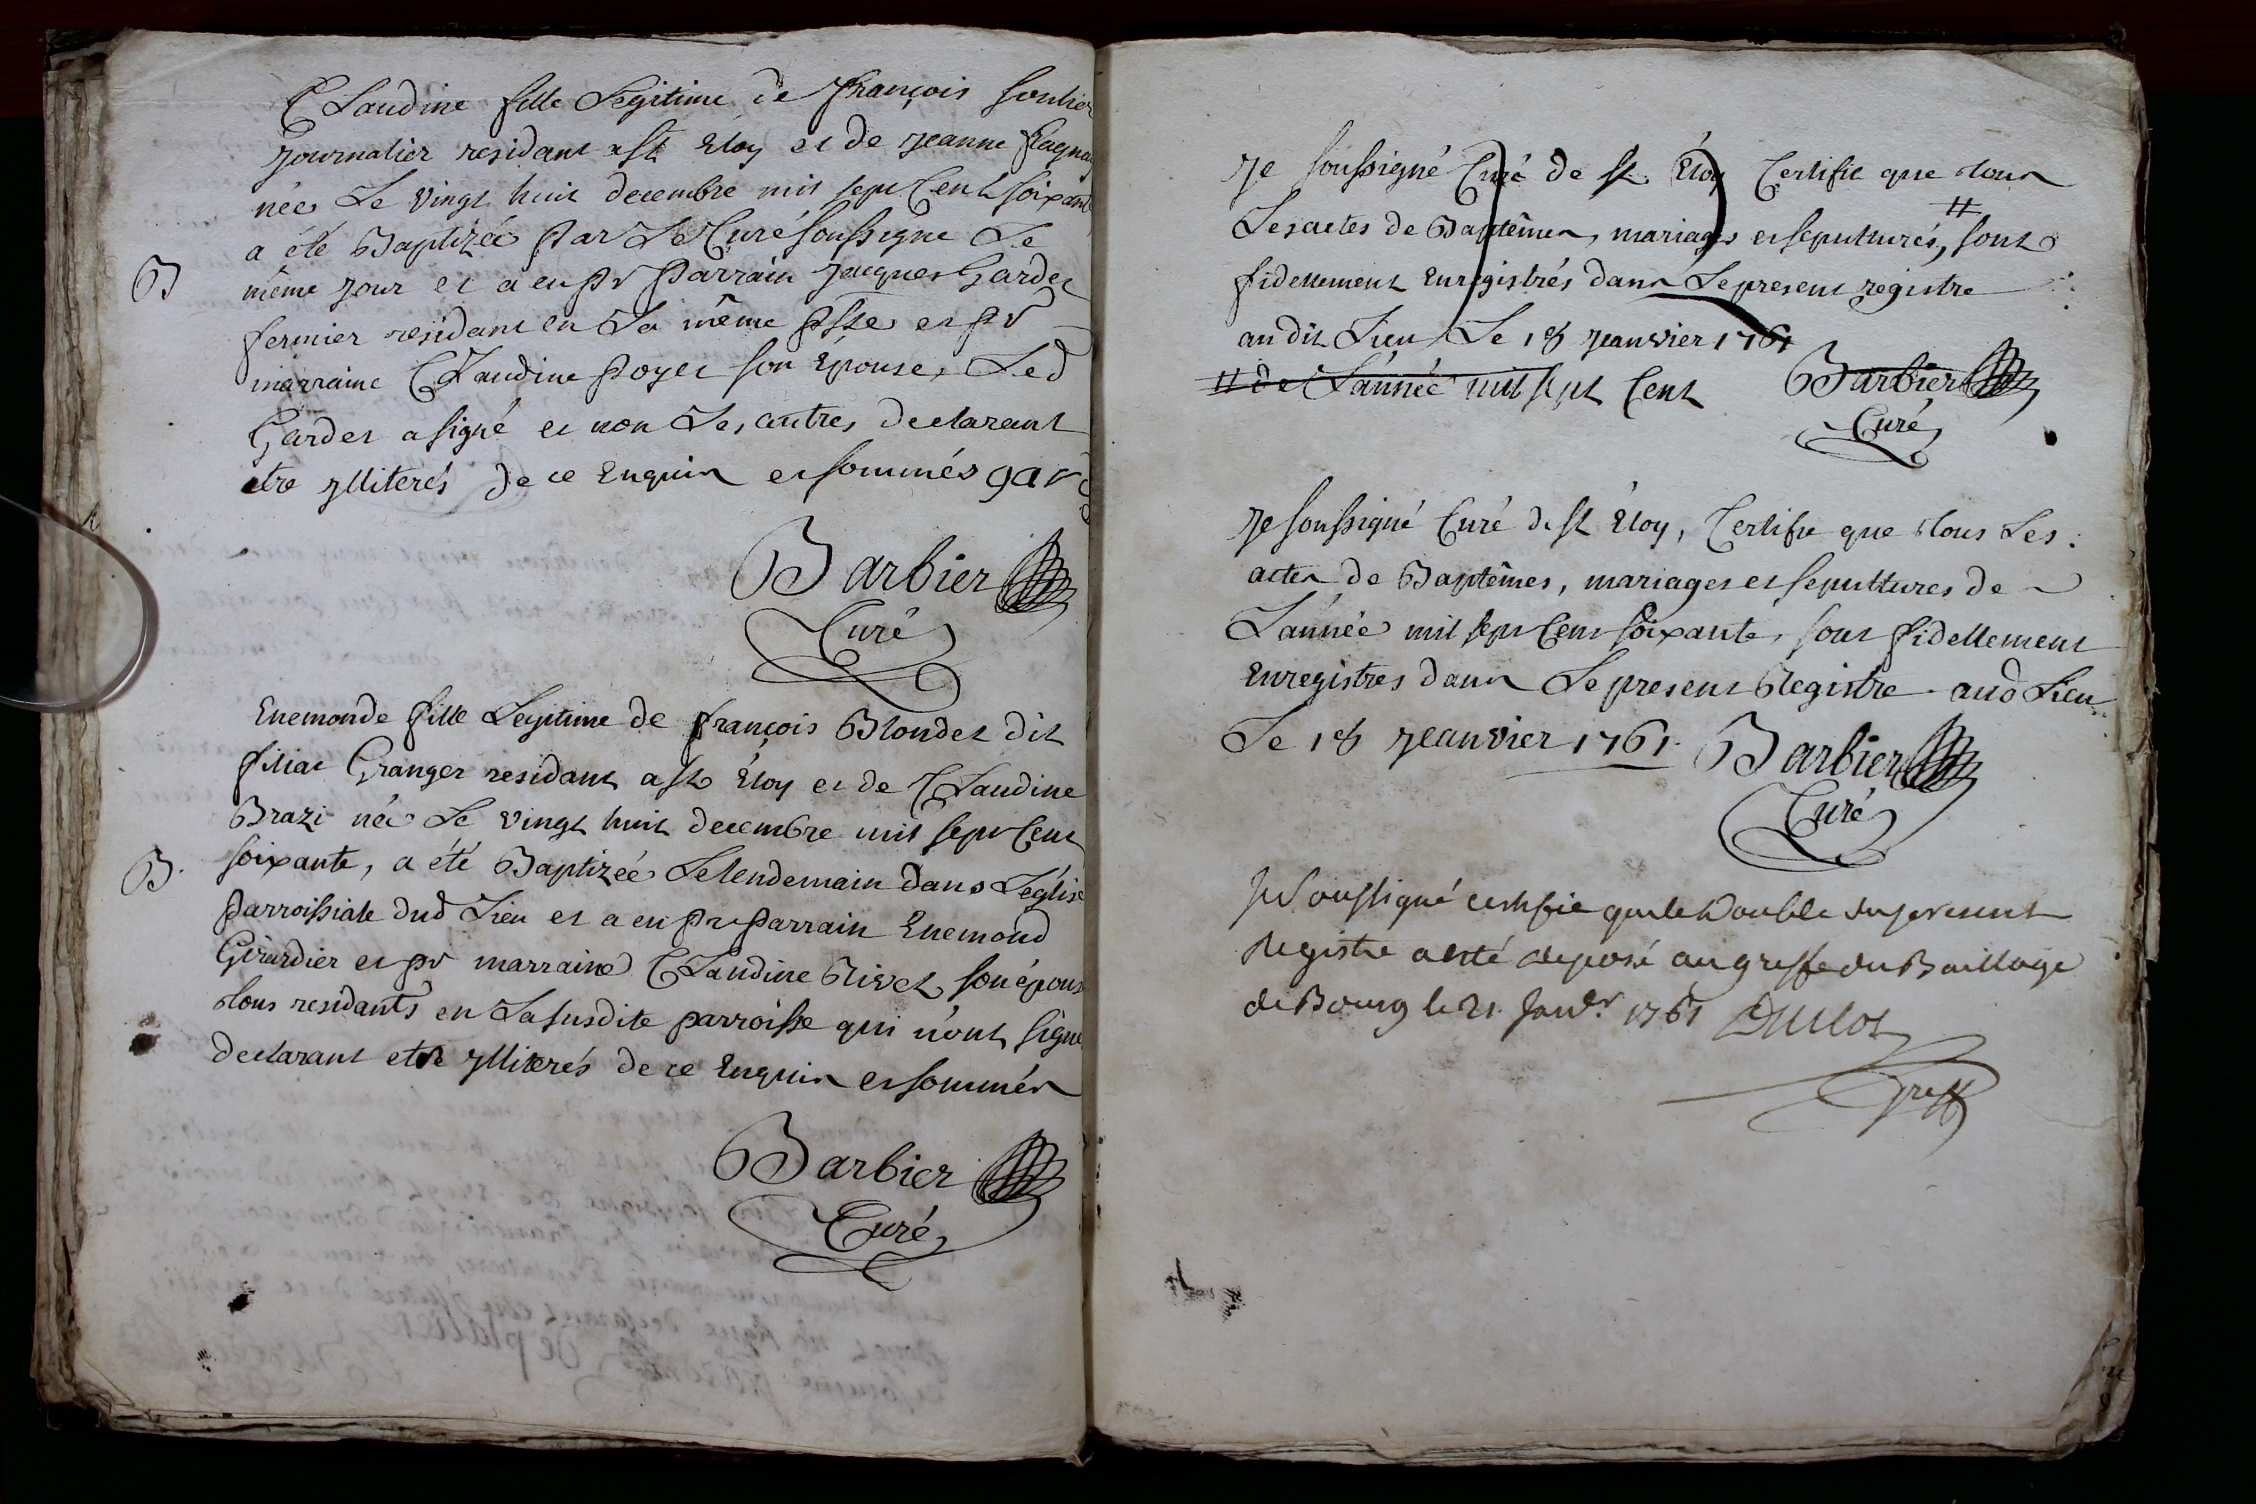 Claudine fille Legitime de françois
Journalier residant a St Eloy et de Jeanne
née Le vingt huit decembre mil sept Cent soixante
a été Baptizée par Le Curé soussigne Le
B
même jour et a eu pr parrain jacques Gardet
fermier residant en La même psse et pr
marraine Claudine poyet son Epouse, Led
Gardet a signé et non Les autres declarant
etre jlliterés de ce Enquis et sommés gard
Barbier
Curé
Enemonde fille Legitime de françois Blondet dit
filiat Granger residant a St Eloy et de Claudine
Brazi née Le vingt huit decembre mil sept Cent
B.
soixante, a été Baptizée Le lendemain dans L'église
parroissiale dud Lieu et a eu pr parrain Enemond
Girardier et pr marraine Claudine Rivet son épouse
tous residants en La susdite parroisse qui n'ont signé
declarant etre jlliterés de ce Enquis et sommés
Barbier
Curé
Je soussigné Curé de St Eloy Certifie que tous
Les actes de Baptêmes, mariages et sepultures, # sont
fidellement Enregistrés dans Le present registre
au dit Lieu Le 18 Jeanvier 1761
# de L'année mil sept Cent
Barbier
Curé
Je soussigné Curé de St Eloy, Certifie que tous Les
actes de Baptêmes, mariages et sepultures de
L'année mil sept Cent soixante, sont fidellement
Enregistres dans Le present Registre aud Lieu
Le 18 Jeanvier 1761. Barbier
Curé
Je Soussigné certifie que le Double du present
Registre a eté deposé au greffe du Baillage
de Bourg le 21 Janvr 1761 Duclot
greff